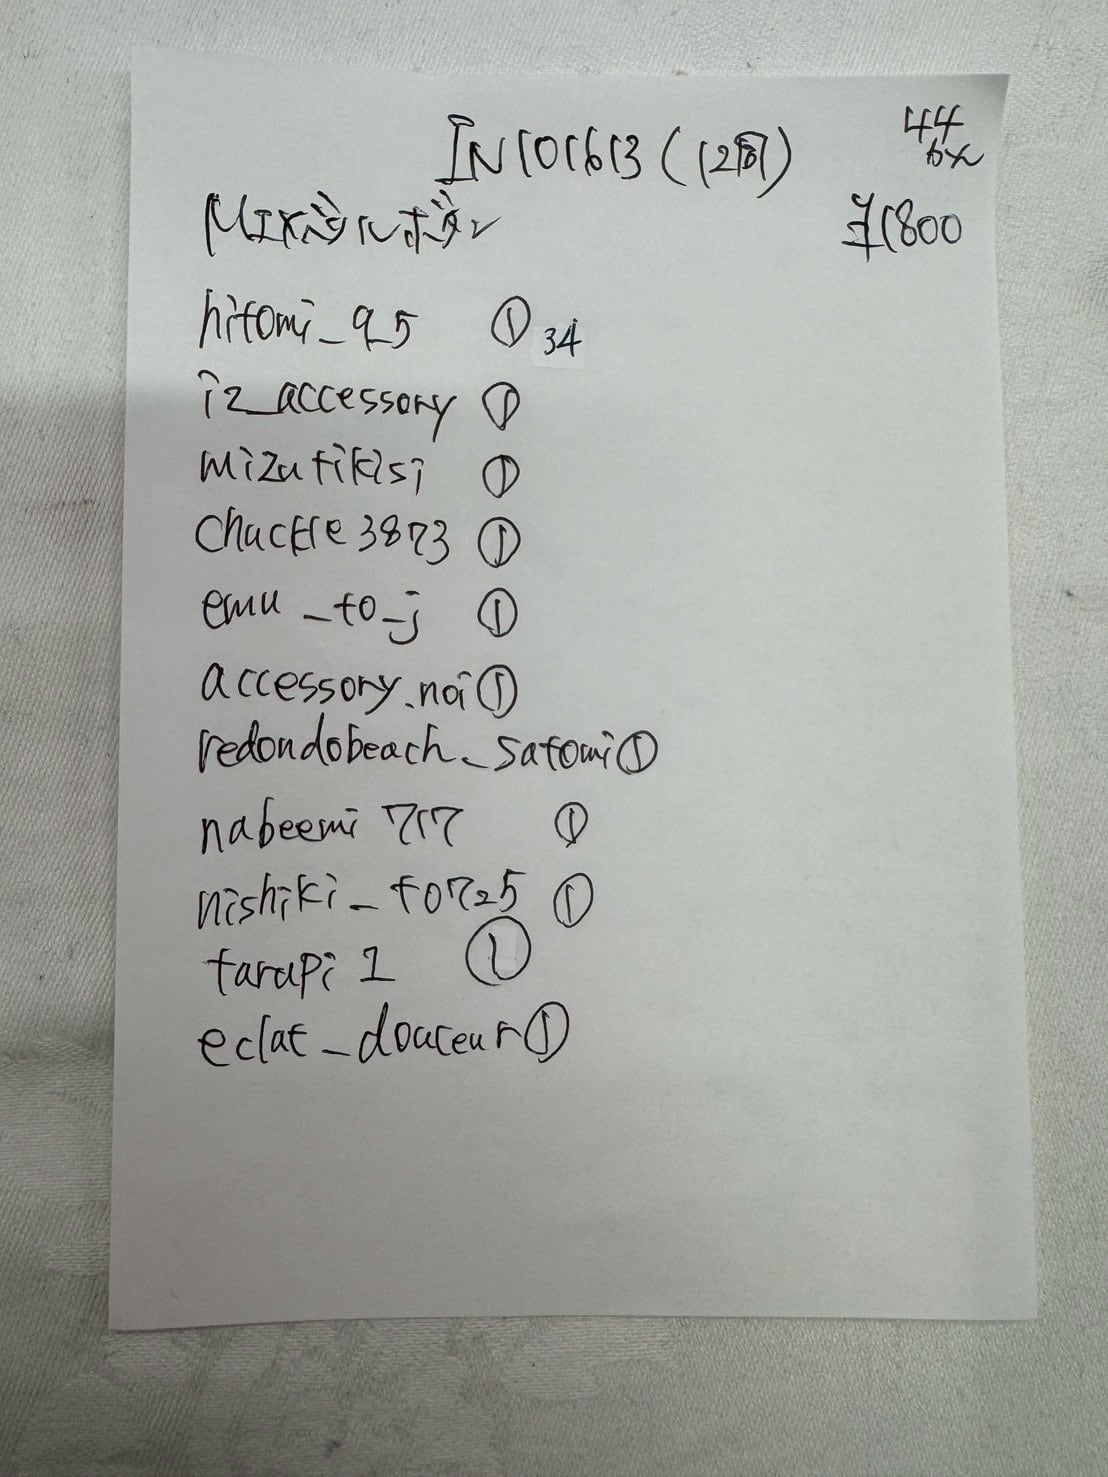 IN101613 (12個)
44
6x
¥1800
MIX
hitomi_95 ① 34
iz_accessory ①
mizutikisi ①
chuckle3873 ①
emu_to_j ①
accessory.noi ①
redondobeach_satomi ①
nabeemi717 ①
nishiki_t0725 ①
tarapi1 ①
eclat_douceur ①